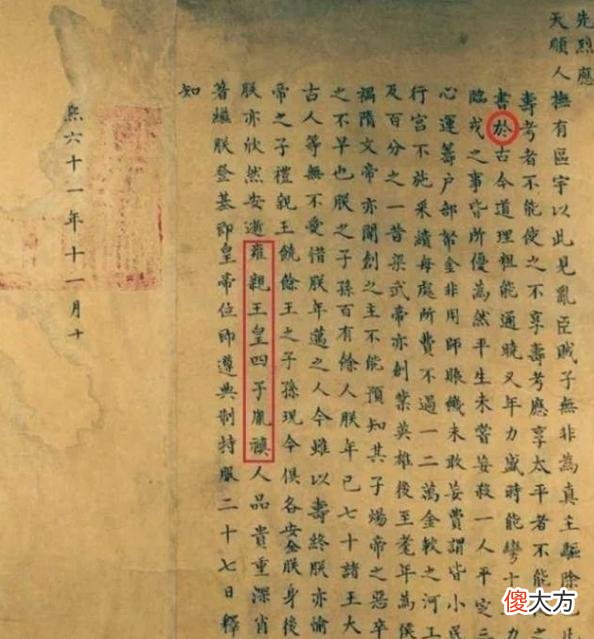 先烈應
天順人撫有區宇以此見亂臣賊子無非為真主驅除
壽考者不能使之不享壽考應享太平者不能
書於古今道理粗能通曉又年力盛時能彎十
臨戎之事皆所優為然平生未嘗妄殺一人平定三
心運籌户部帑金非用師賑饑未敢妄費謂皆小民
行宮不施采繢每處所費不過一二萬金較之河工
及百分之一昔梁武帝亦創業英雄後至耄年為侯
禍隋文帝亦開創之主不能預知其子煬帝之惡卒
之不早也朕之子孫百有餘人朕年已七十諸王大
古人等無不愛惜朕年邁之人今雖以壽終朕亦愉
帝之子禮親王饒餘王之子孫現今俱各安全朕身後
朕亦欣然安逝雍親王皇四子胤禛人品貴重深肖
著繼朕登基即皇帝位即遵典制持服二十七日釋
知
熙六十一年十一月十
傻大方